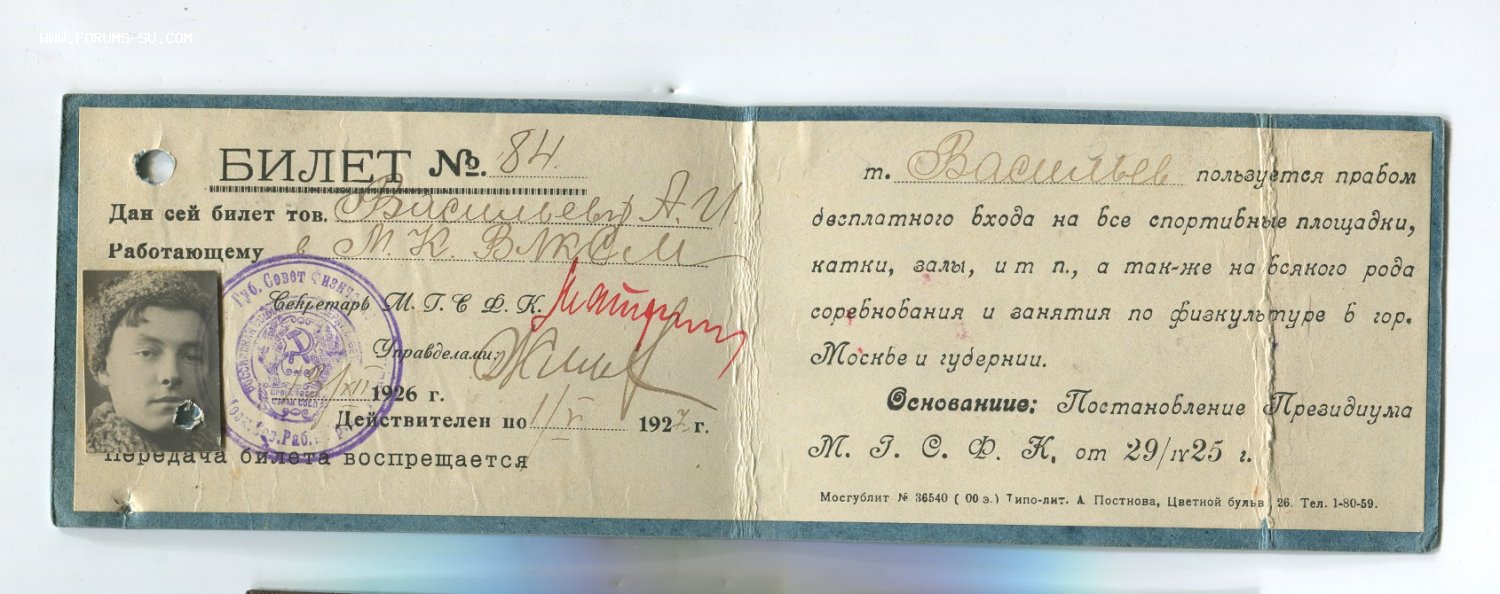 WWW.FORUMS-SU.COM
БИЛЕТ №. 84
Дан сей билет тов. Васильеву А. И.
Работающему в М. К. ВЛКСМ
Губ. Совет Физич
Секретарь М. Г. С. Ф. К.
Управделами:
/XII 1926 г.
Действителен по 1/V 1927 г.
Передача билета воспрещается
т. Васильев пользуется правом
бесплатного входа на все спортивные площадки,
катки, залы, и т п., а так-же на всякого рода
соревнования и занятия по физкультуре в гор.
Москве и губернии.
Основаниие: Постановление Президиума
М. Г. С. Ф. К. от 29/IV 25 г.
Мосгублит № 36540 ( 00 э.) Типо-лит. А. Постнова, Цветной бульв 26. Тел. 1-80-59.